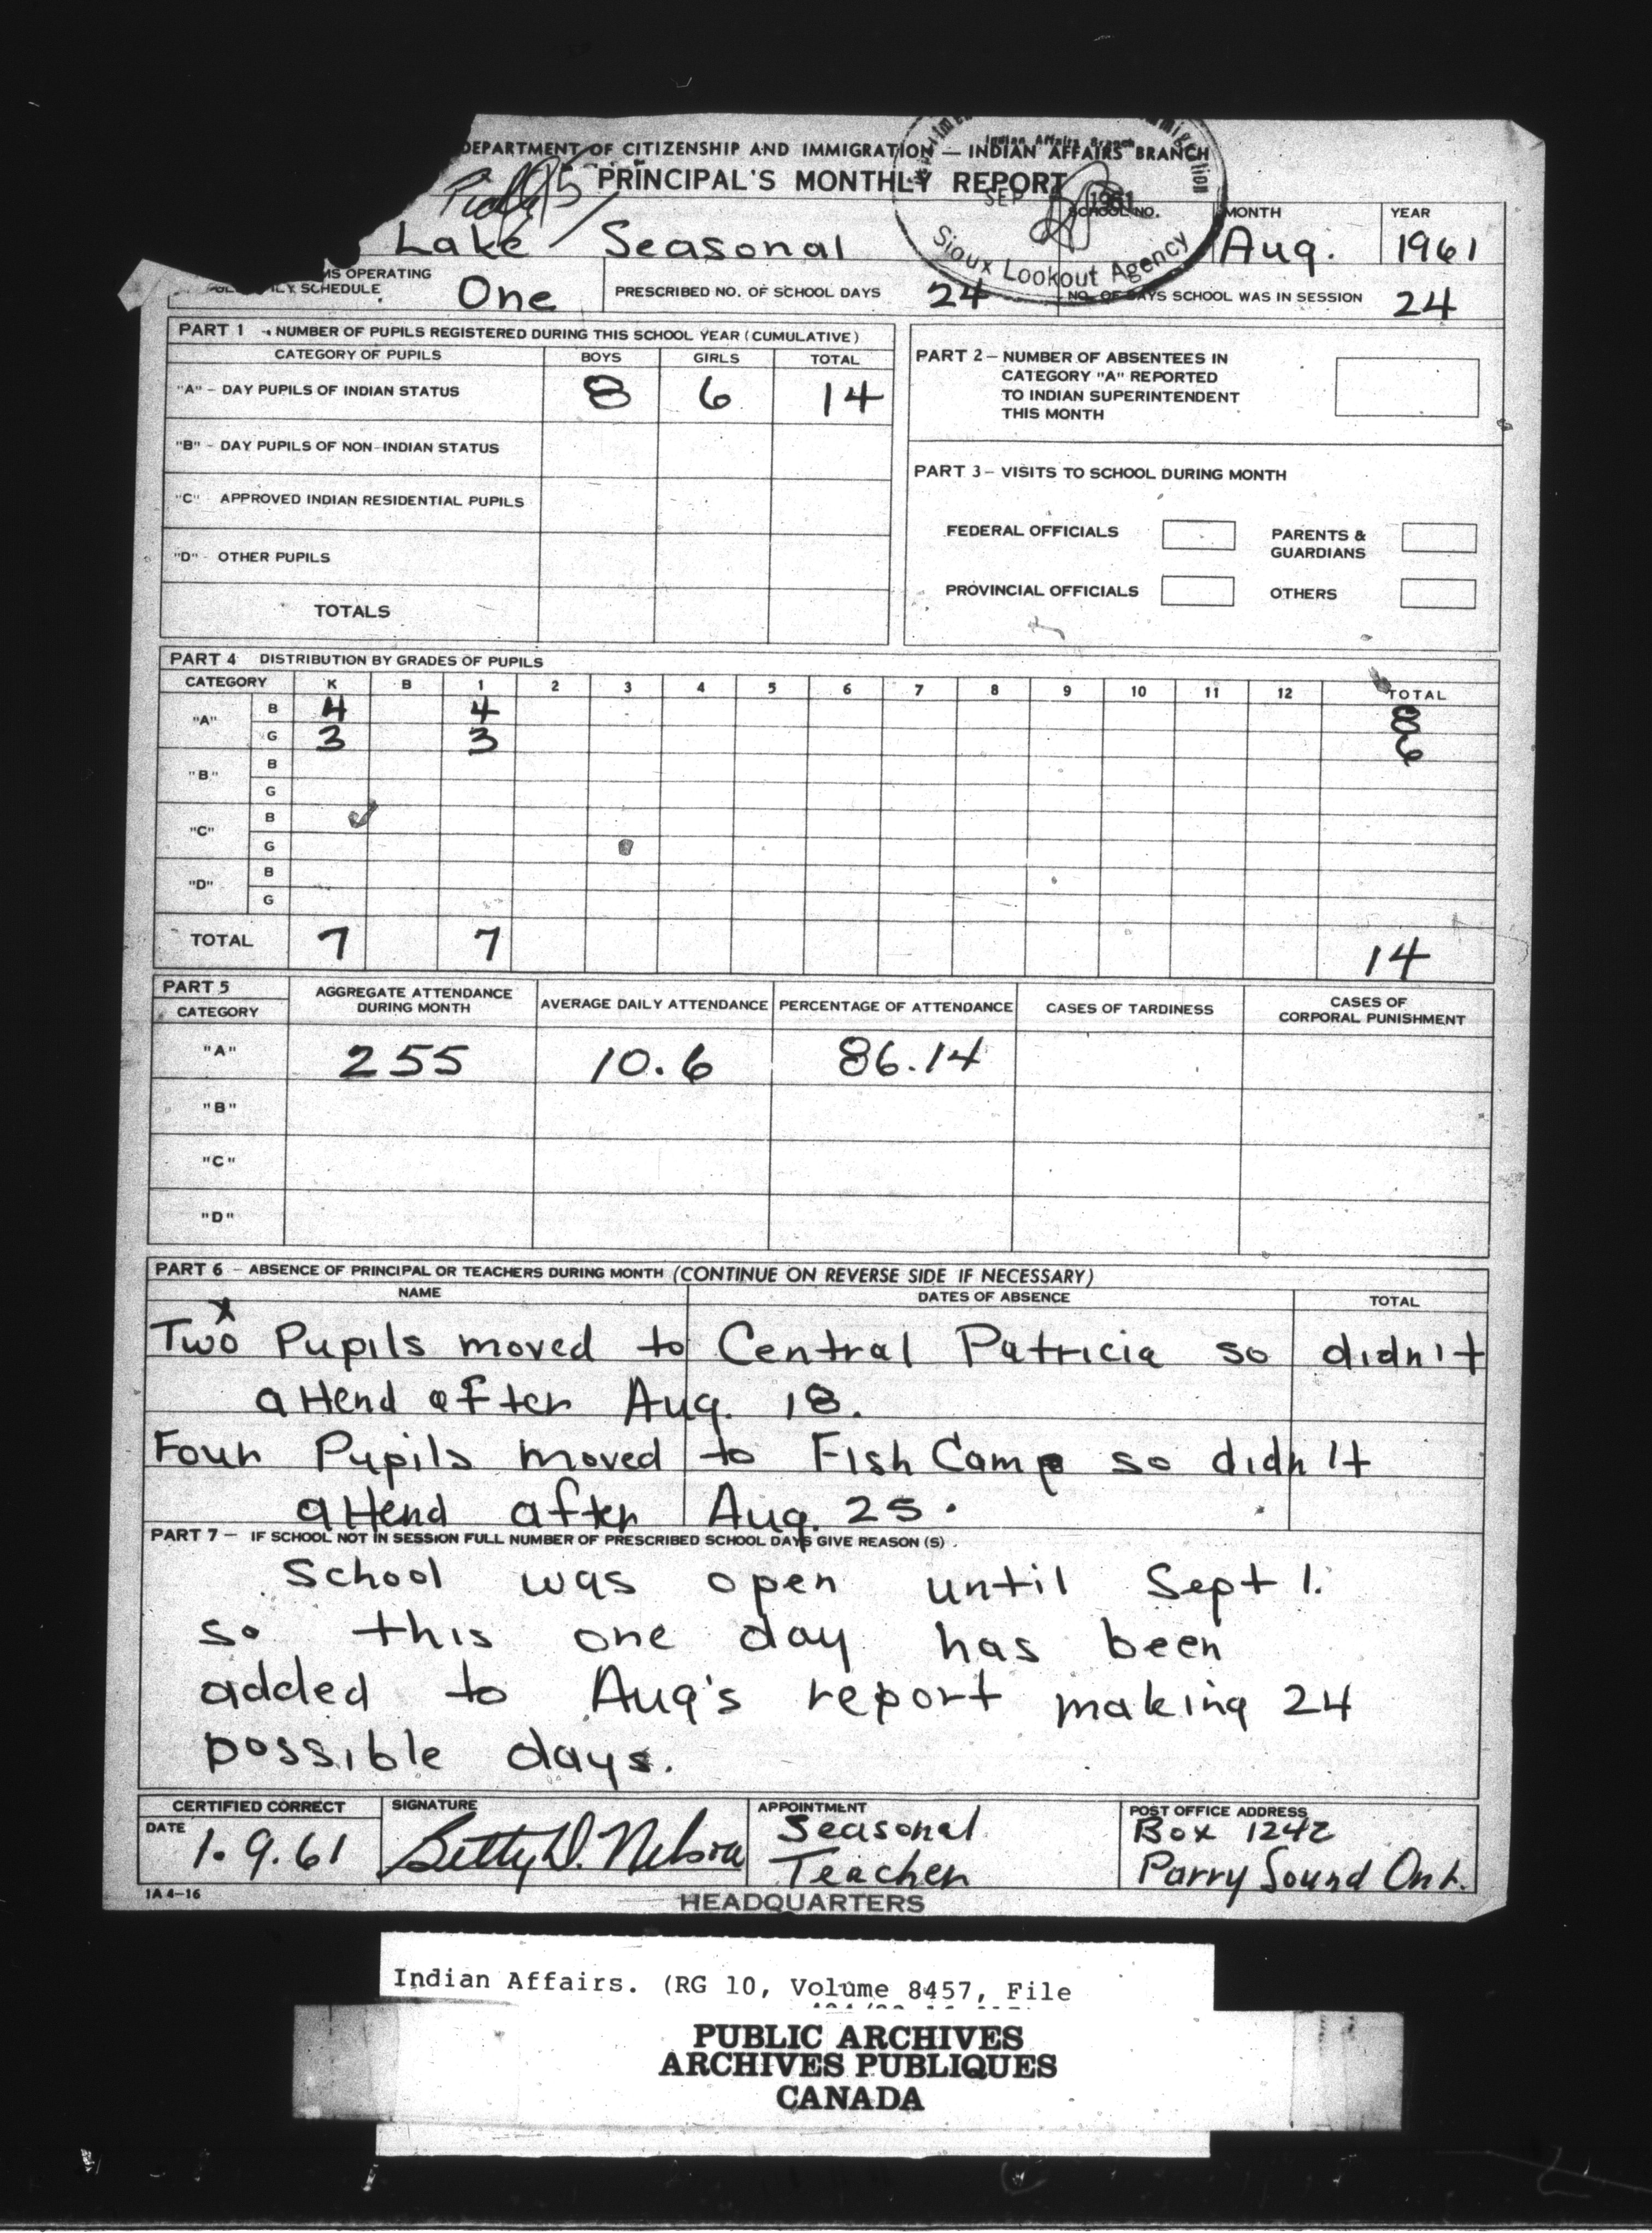 DEPARTMENT OF CITIZENSHIP AND IMMIGRATION — INDIAN AFFAIRS BRANCH
PRINCIPAL'S MONTHLY REPORT
Indian Affairs Branch
SEP 1961
Sioux Lookout Agency
SCHOOL NO.
MONTH
YEAR
Lake Seasonal
Aug.
1961
OPERATING
SCHEDULE
One
PRESCRIBED NO. OF SCHOOL DAYS
24
NO. OF DAYS SCHOOL WAS IN SESSION
24
PART 1 - NUMBER OF PUPILS REGISTERED DURING THIS SCHOOL YEAR (CUMULATIVE)
CATEGORY OF PUPILS BOYS GIRLS TOTAL
"A" - DAY PUPILS OF INDIAN STATUS 8 6 14
"B" - DAY PUPILS OF NON-INDIAN STATUS
"C" APPROVED INDIAN RESIDENTIAL PUPILS
"D" - OTHER PUPILS
TOTALS
PART 2 - NUMBER OF ABSENTEES IN
CATEGORY "A" REPORTED
TO INDIAN SUPERINTENDENT
THIS MONTH
PART 3 - VISITS TO SCHOOL DURING MONTH
FEDERAL OFFICIALS
PARENTS &
GUARDIANS
PROVINCIAL OFFICIALS
OTHERS
PART 4 DISTRIBUTION BY GRADES OF PUPILS
CATEGORY K B 1 2 3 4 5 6 7 8 9 10 11 12 TOTAL
"A" B 4 4 8
G 3 3 6
"B" B
G
"C" B
G
"D" B
G
TOTAL 7 7 14
PART 5
CATEGORY
AGGREGATE ATTENDANCE
DURING MONTH
AVERAGE DAILY ATTENDANCE
PERCENTAGE OF ATTENDANCE
CASES OF TARDINESS
CASES OF
CORPORAL PUNISHMENT
"A" 255 10.6 86.14
"B"
"C"
"D"
PART 6 - ABSENCE OF PRINCIPAL OR TEACHERS DURING MONTH (CONTINUE ON REVERSE SIDE IF NECESSARY)
NAME DATES OF ABSENCE TOTAL
x
Two Pupils moved to Central Patricia so didn't
attend after Aug. 18.
Four Pupils moved to Fish Camp so didn't
attend after Aug. 25.
PART 7 - IF SCHOOL NOT IN SESSION FULL NUMBER OF PRESCRIBED SCHOOL DAYS GIVE REASON (S).
School was open until Sept 1.
so this one day has been
added to Aug's report making 24
possible days.
CERTIFIED CORRECT
DATE
1.9.61
SIGNATURE
Betty D. Nelson
APPOINTMENT
Seasonal
Teacher
POST OFFICE ADDRESS
Box 1242
Parry Sound Ont.
IA 4-16
HEADQUARTERS
Indian Affairs. (RG 10, Volume 8457, File
PUBLIC ARCHIVES
ARCHIVES PUBLIQUES
CANADA